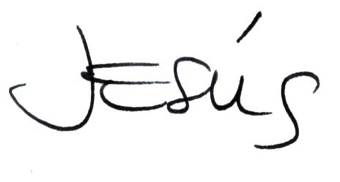 JESÚS